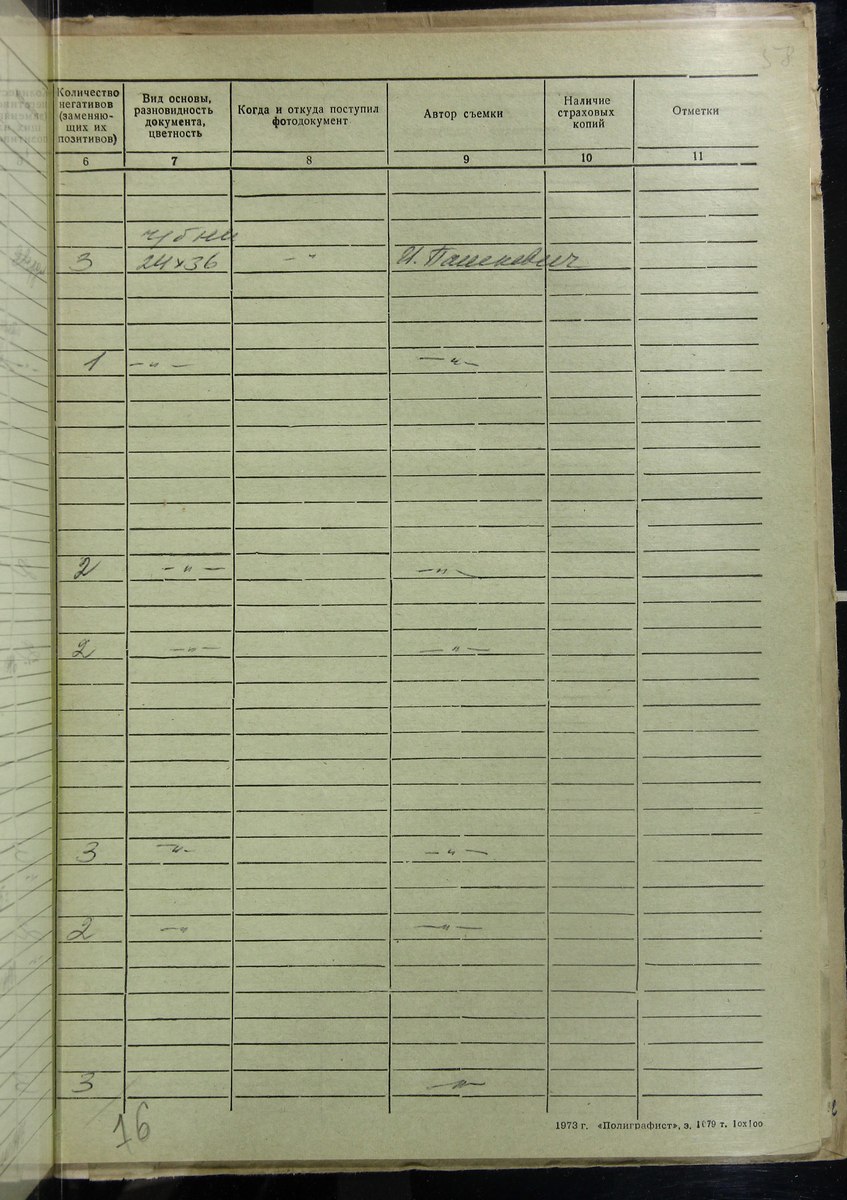 58
Количество негативов (заменяю- щих их позитивов)
Вид основы, разновидность документа, цветность
Когда и откуда поступил фотодокумент
Автор съемки
Наличие страховых копий
Отметки
6 7 8 9 10 11
3 24×36 –"– И. Пашкевич
1 –"– –"–
2 –"– –"–
2 –"– –"–
3 –"– –"–
2 –"– –"–
3 –"–
16
1973 г. «Полиграфист», з. 1679 т. 10х100